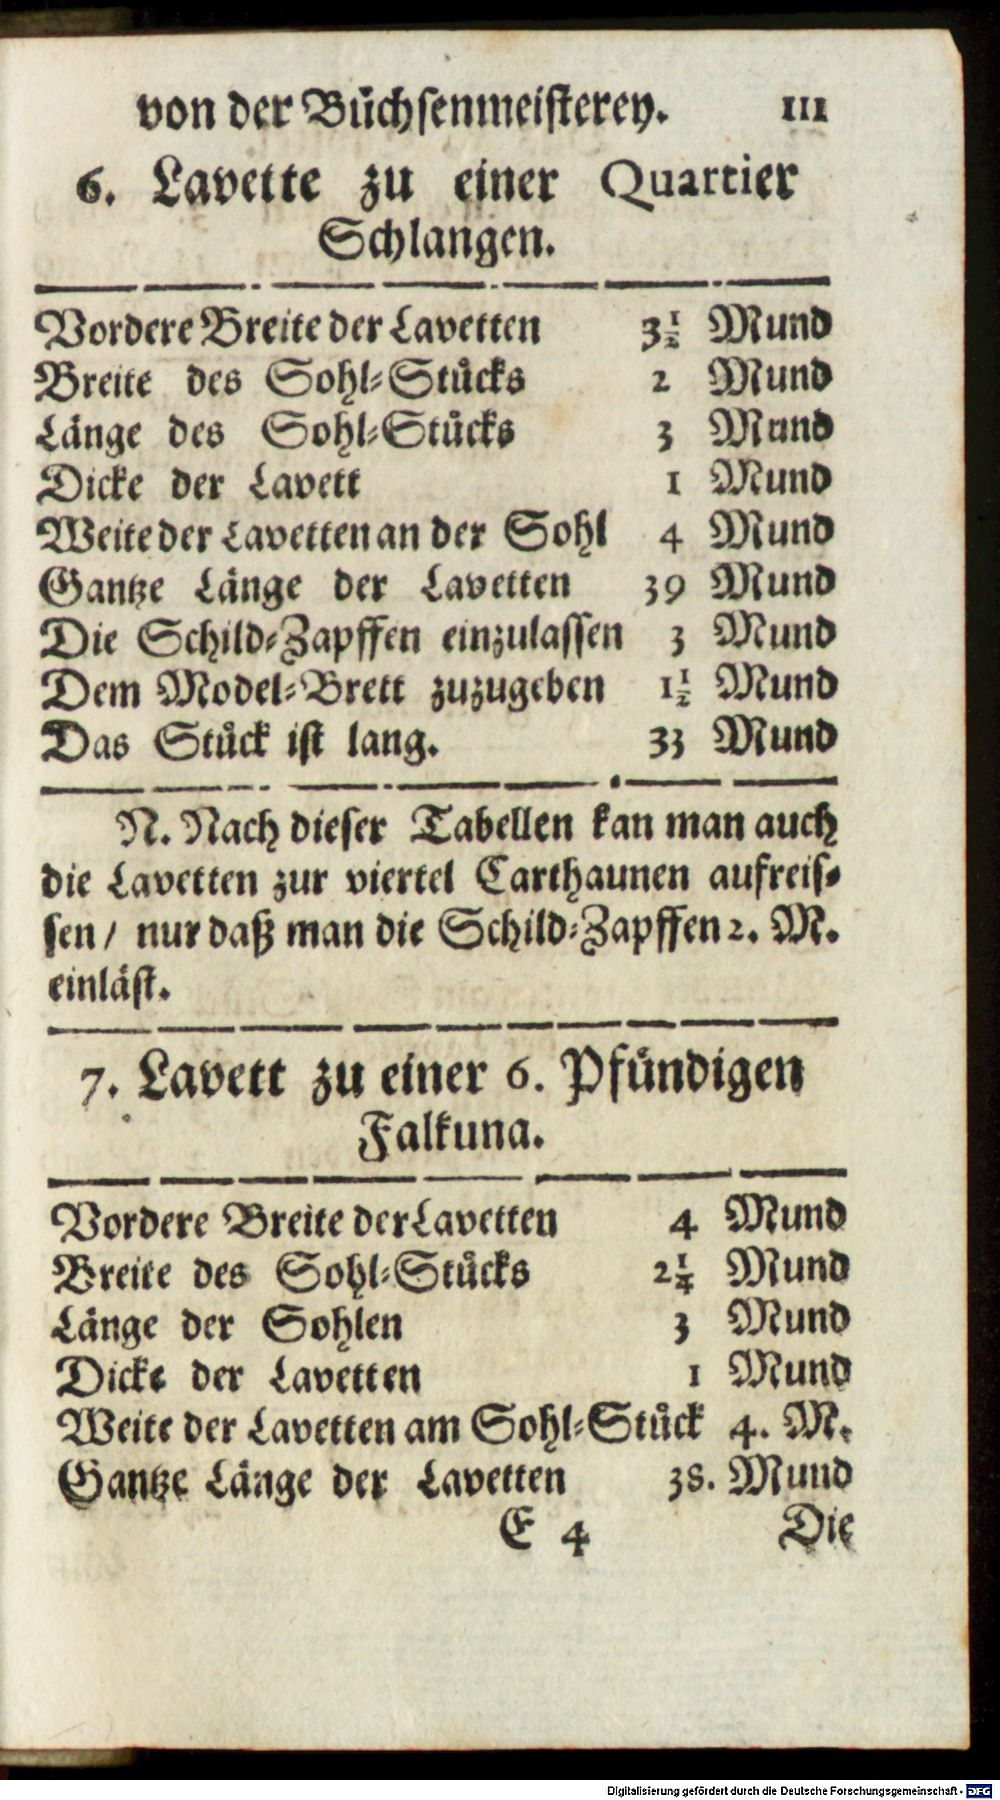 von der Büchsenmeisterey. 111
6. Lavette zu einer Quartier
Schlangen.
Vordere Breite der Lavetten 3 1/2 Mund
Breite des Sohl-Stücks 2 Mund
Länge des Sohl-Stücks 3 Mund
Dicke der Lavett 1 Mund
Weite der Lavetten an der Sohl 4 Mund
Gantze Länge der Lavetten 39 Mund
Die Schild-Zapffen einzulassen 3 Mund
Dem Model-Brett zuzugeben 1 1/2 Mund
Das Stück ist lang. 33 Mund
N. Nach dieser Tabellen kan man auch
die Lavetten zur viertel Carthaunen aufreis-
sen / nur daß man die Schild-Zapffen 2. M.
einläst.
7. Lavett zu einer 6. Pfündigen
Falkuna.
Vordere Breite der Lavetten 4 Mund
Breite des Sohl-Stücks 2 1/4 Mund
Länge der Sohlen 3 Mund
Dicke der Lavetten 1 Mund
Weite der Lavetten am Sohl-Stück 4. M.
Gantze Länge der Lavetten 38. Mund
E 4 Die
Digitalisierung gefördert durch die Deutsche Forschungsgemeinschaft - DFG